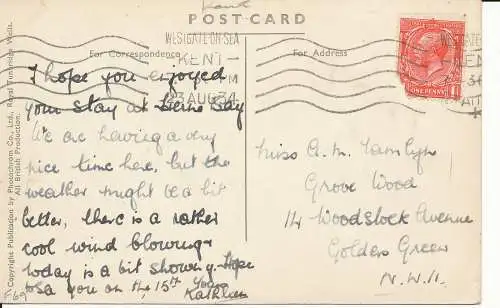 Kent
POST CARD
WESTGATE-ON-SEA
KENT
PM
3 AUG 34
For Correspondence
For Address
ONE PENNY
I hope you enjoyed
your stay at Herne Bay
We are having a very
nice time here, but the
weather might be a bit
better, there is a rather
cool wind blowing
today is a bit showery. Hope
to sea you on the 15th Yours
Kathleen
Miss A. M. Tamlyn
Grove Wood
14 Woodstock Avenue
Golders Green
N.W.11.
Copyright Publication by Photochrom Co., Ltd., Royal Tunbridge Wells.
All British Production.